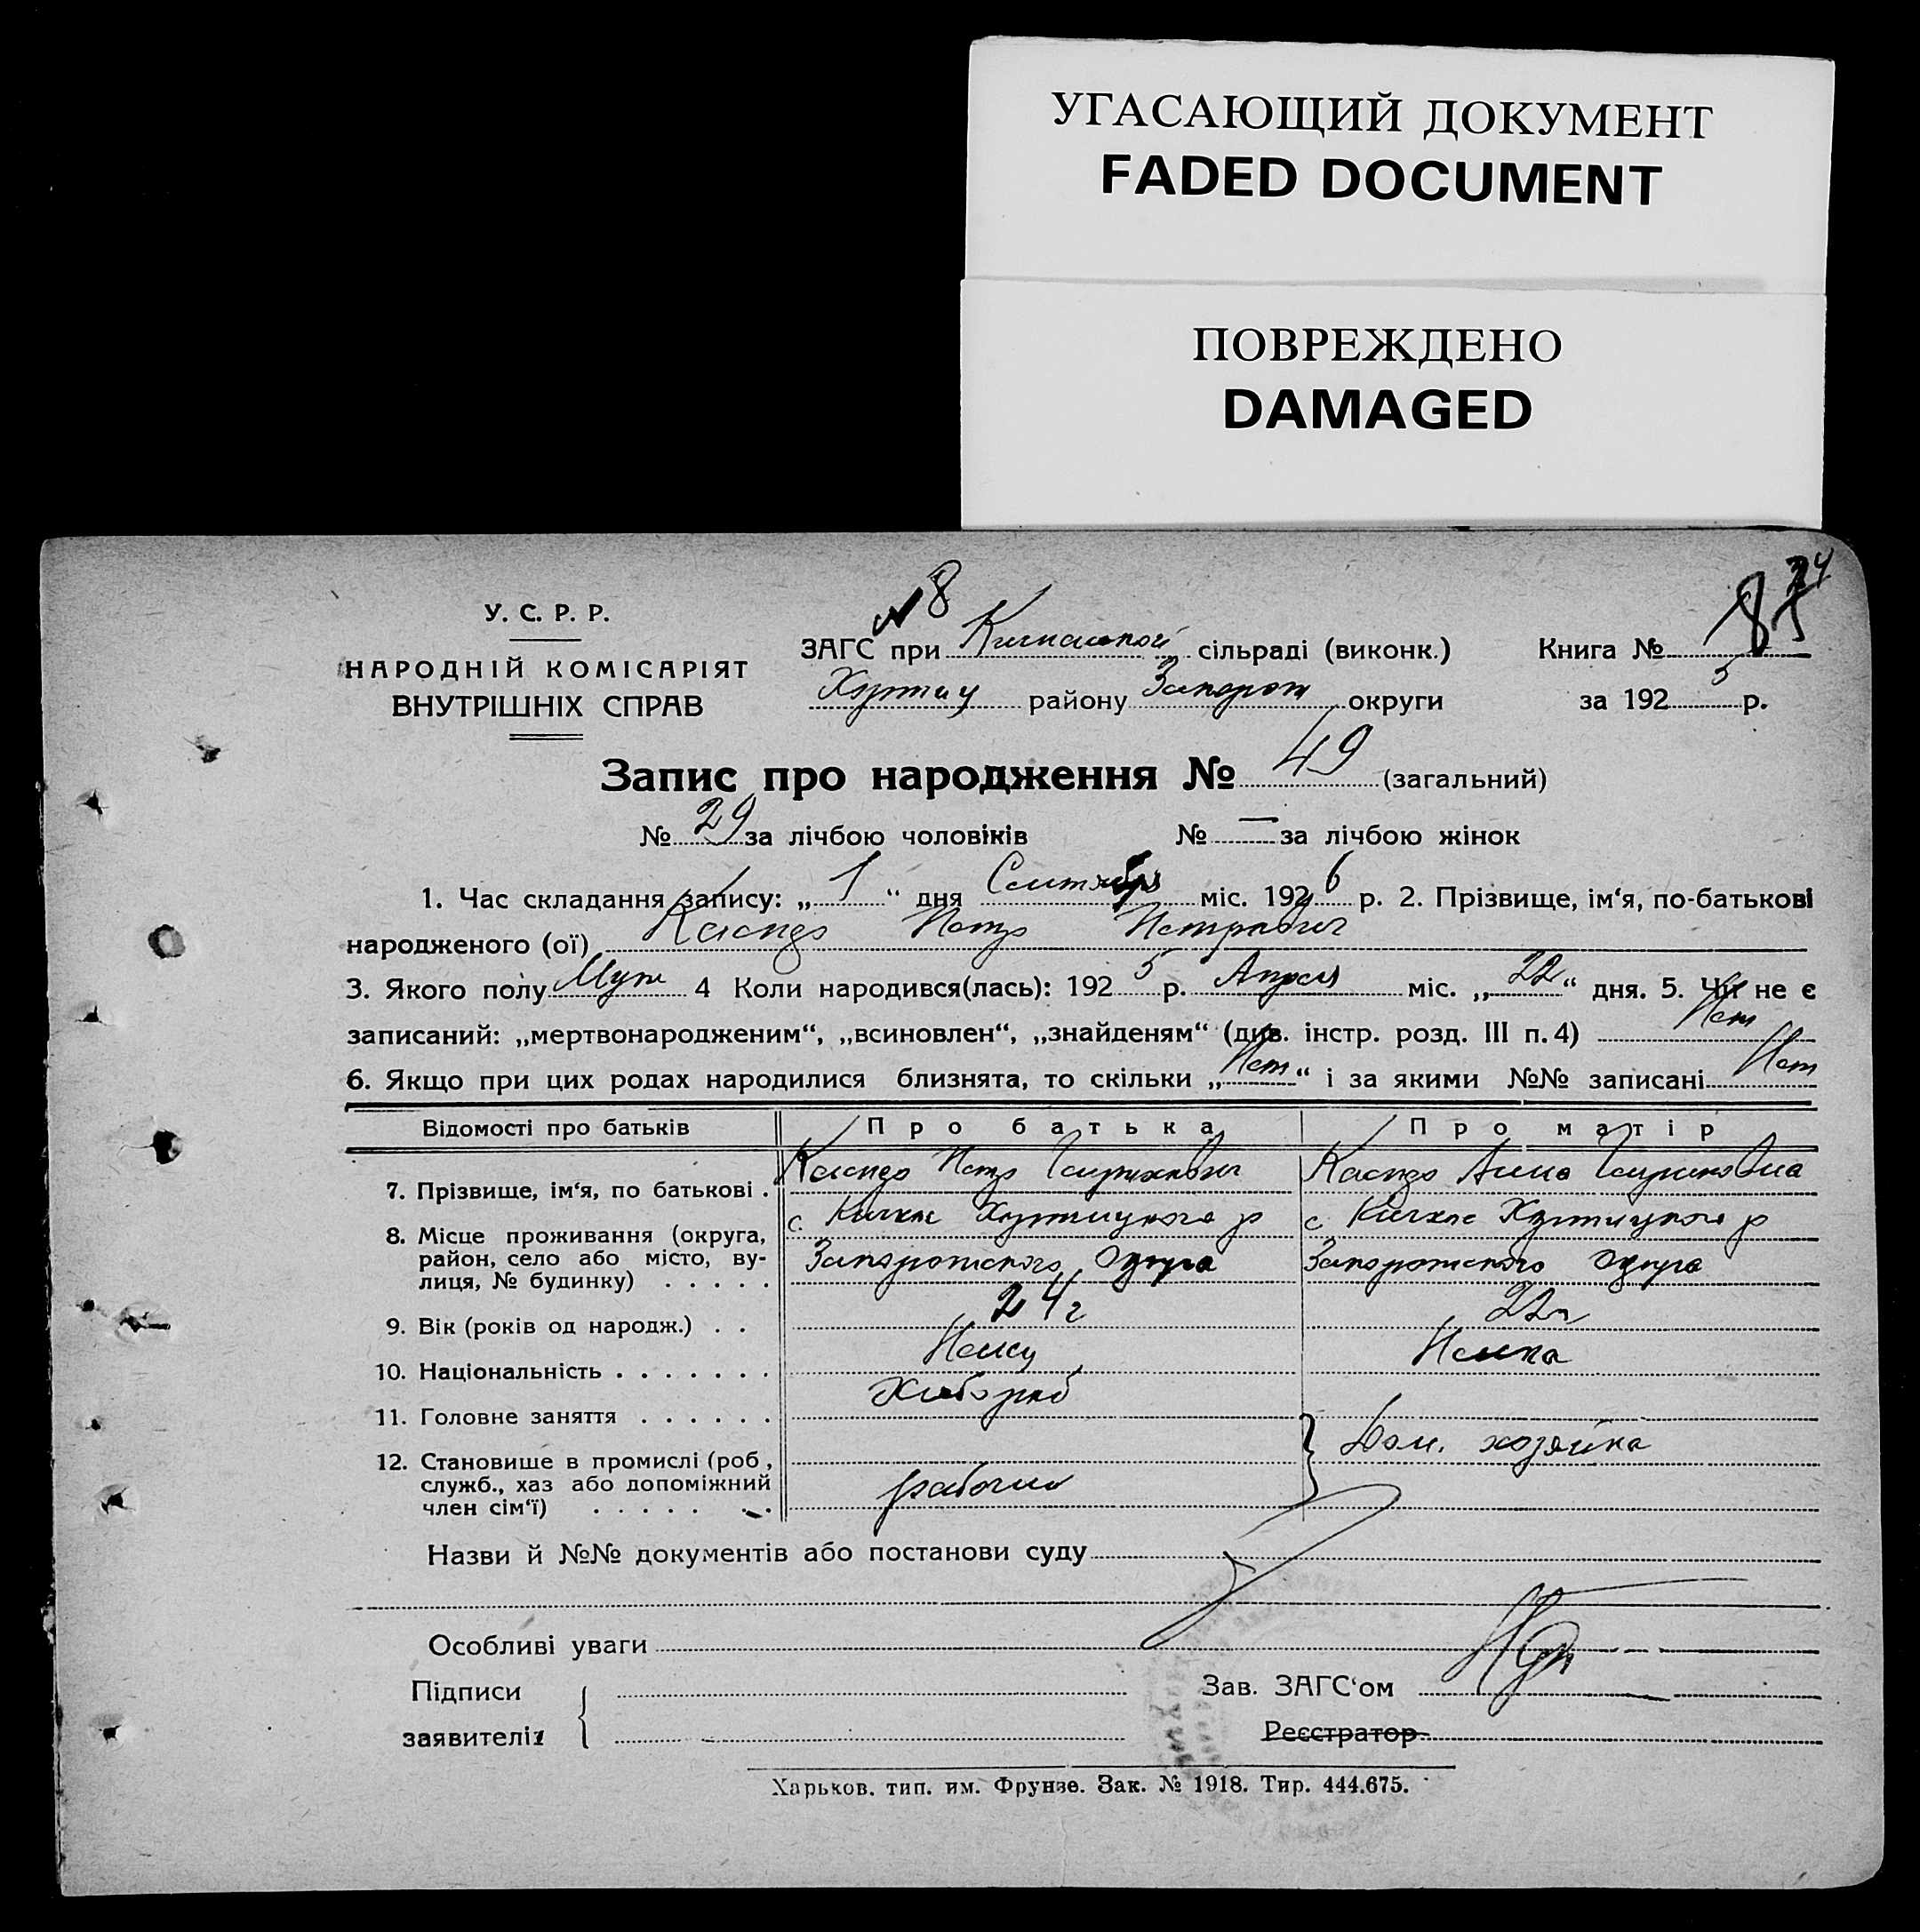 УГАСАЮЩИЙ ДОКУМЕНТ
FADED DOCUMENT
ПОВРЕЖДЕНО
DAMAGED
№ 8
У. С. Р. Р.
НАРОДНІЙ КОМІСАРІЯТ
ВНУТРІШНІХ СПРАВ
ЗАГС при Кичкасской сільраді (виконк.)
Хортиц району Запорож округи
Книга №
за 1925 р.
Запис про народження № 49 (загальний)
№ 29 за лічбою чоловіків № — за лічбою жінок
1. Час складання запису: „ 1 “ дня Сентября міс. 1926 р. 2. Прізвище, ім‘я, по-батькові
народженого (ої) Каспер Петр Петрович
3. Якого полу Муж 4 Коли народився(лась): 1925 р. Апреля міс. „ 22 “ дня. 5. Чи не є
записаний: „мертвонародженим“, „всиновлен“, „знайденям“ (див. інстр. розд. III п. 4) Нет
6. Якщо при цих родах народилися близнята, то скільки „ Нет “ і за якими №№ записані Нет
Відомості про батьків Про батька Про матір
7. Прізвище, ім‘я, по батькові . Каспер Петр Каспер Анна
8. Місце проживання (округа, район, село або місто, вулиця, № будинку) . . . . .
с. Кичкас Хортицкого р с Кичкас Хортицкого р
Запорожского Округа Запорожского Округа
9. Вік (років од народж.) . . 24 г 22 г
10. Національність . . . . . . . Немец Немка
11. Головне заняття . . . . . . Хлебороб
12. Становище в промислі (роб, служб., хаз або допоміжний член сім‘ї) . . . . . . . рабочий Дом. хозяйка
Назви й №№ документів або постанови суду
Особливі уваги
Підписи
заявителів
Зав. ЗАГС‘ом
Реєстратор
Харьков. тип. им. Фрунзе. Зак. № 1918. Тир. 444.675.